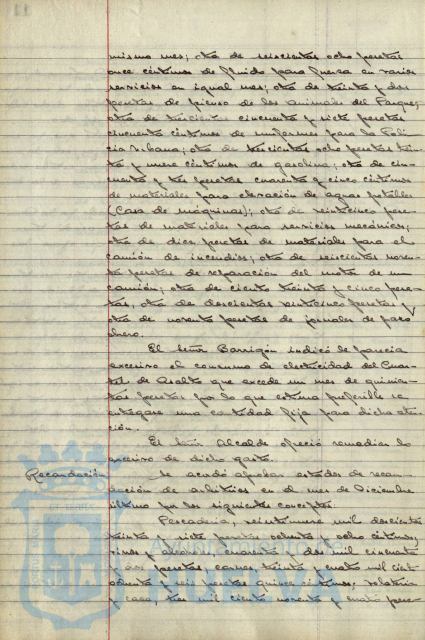 mismo mes; otra de seiscientas ocho pesetas
once céntimos de fluido para fuerza en varios
servicios en igual mes; otra de treinta y dos
pesetas de pienso de los animales del Parque;
otra de trescientas cincuenta y siete pesetas
cincuenta céntimos de uniformes para la Poli
cia Urbana; otra de trescientas ocho pesetas
y nueve céntimos de gasolina; otra de cin
cuenta y tres pesetas cuarenta y cinco céntimos
de materiales para elevación de aguas potables
(Casa de máquinas); otra de veinticinco pese
tas de materiales para servicios mecánicos;
otra de diez pesetas de materiales para el
camión de incendios; otra de seiscientas noven
ta pesetas de reparación del motor de un
camión; otra de ciento treinta y cinco pese
tas, otra de doscientas veinticinco pesetas y
otra de noventa pesetas de jornales de paro
obrero.
El Señor Barrigón indicó le parecia
excesivo el consumo de electricidad del Cuar
tel de Asalto que excede un mes de quinien
tas pesetas por lo que estima preferible se
entregase una cantidad fija para dicha aten
ción.
El Señor Alcalde ofreció remediar lo
excesivo de dicho gasto.
Recaudación Se acordó aprobar estados de recau
dación de arbitrios en el mes de Diciembre
último por los siguientes conceptos:
Pescaderia, veintinueve mil doscientas
treinta y siete pesetas ochenta y ocho céntimos,
vinos y alcoholes cuarenta y dos mil cincuenta
y dos pesetas, carnes, treinta y cuatro mil cien
to ochenta y seis pesetas quince céntimos; volateria
y caza, tres mil ciento noventa y cuatro pese